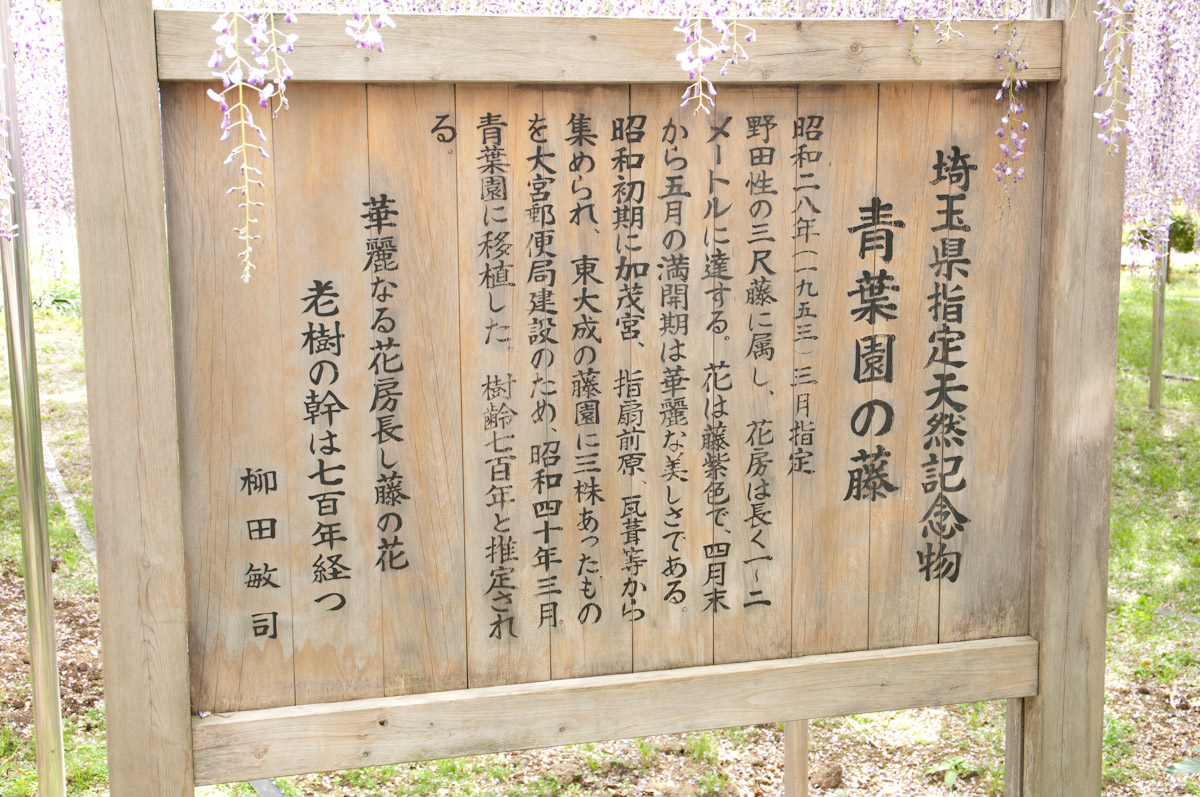 埼玉県指定天然記念物
青葉園の藤
昭和二八年(一九五三)三月指定
野田性の三尺藤に属し、花房は長く一〜二
メートルに達する。花は藤紫色で、四月末
から五月の満開期は華麗な美しさである。
昭和初期に加茂宮、指扇前原、瓦葺等から
集められ、東大成の藤園に三株あったもの
を大宮郵便局建設のため、昭和四十年三月
青葉園に移植した。樹齢七百年と推定され
る。
華麗なる花房長し藤の花
老樹の幹は七百年経つ
柳田敏司